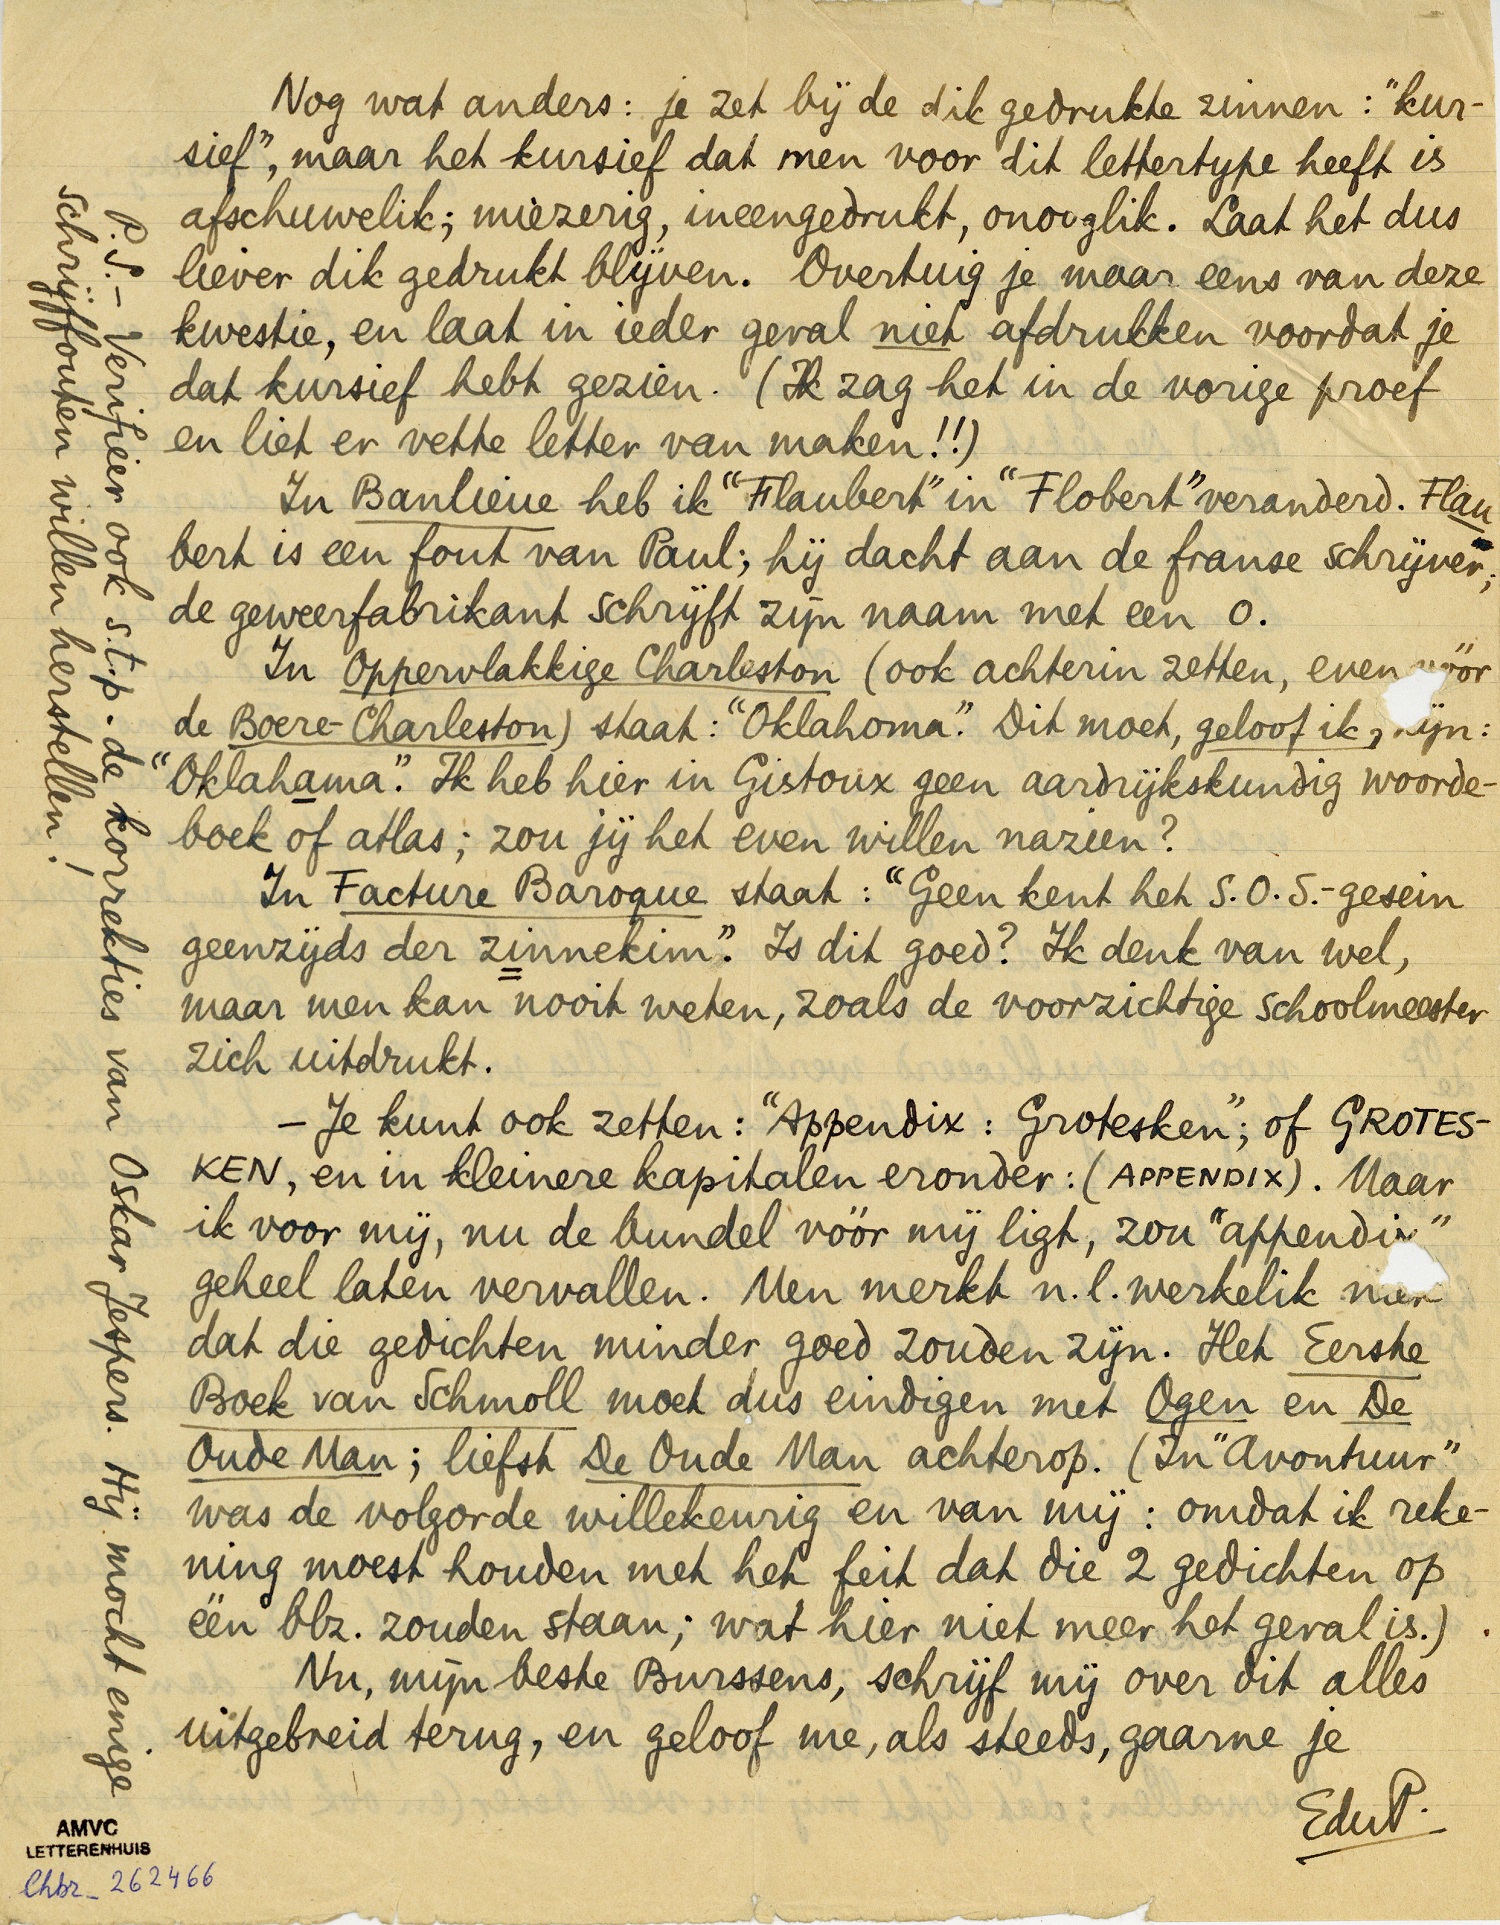 Nog wat anders: je zet bij de dik gedrukte zinnen: "kur-
sief", maar het kursief dat men voor dit lettertype heeft is
afschuwelik; miezerig, ineengedrukt, onooglik. Laat het dus
liever dik gedrukt blijven. Overtuig je maar eens van deze
kwestie, en laat in ieder geval niet afdrukken voordat je
dat kursief hebt gezien. (Ik zag het in de vorige proef
en liet er vette letter van maken!!)
In Banlieue heb ik "Flaubert" in "Flobert" veranderd. Flau
bert is een fout van Paul; hij dacht aan de franse schrijver;
de geweerfabrikant schrijft zijn naam met een o.
In Oppervlakkige Charleston (ook achterin zetten, even vóór
de Boere-Charleston) staat: "Oklahoma". Dit moet, geloof ik, zijn:
"Oklahama". Ik heb hier in Gistoux geen aardrijkskundig woorde-
boek of atlas; zou jij het even willen nazien?
In Facture Baroque staat: "Geen kent het S.O.S.-gesein
geenzijds der zinnekim". Is dit goed? Ik denk van wel,
maar men kan nooit weten, zoals de voorzichtige schoolmeester
zich uitdrukt.
– Je kunt ook zetten: "Appendix: Grotesken"; of GROTES-
KEN, en in kleinere kapitalen eronder: (APPENDIX). Maar
ik voor mij, nu de bundel vóór mij ligt, zou "appendix"
geheel laten vervallen. Men merkt n.l. werkelik niet
dat die gedichten minder goed zouden zijn. Het Eerste
Boek van Schmoll moet dus eindigen met Ogen en De
Oude Man; liefst De Oude Man achterop. (In "Avontuur"
was de volgorde willekeurig en van mij: omdat ik reke-
ning moest houden met het feit dat die 2 gedichten op
één blz. zouden staan; wat hier niet meer het geval is.)
Nu, mijn beste Burssens, schrijf mij over dit alles
uitgebreid terug, en geloof me, als steeds, gaarne je
EduP.
P.S.– Verifieer ook s.t.p. de korrekties van Oskar Jespers. Hij mocht enige
schrijffouten willen herstellen!
AMVC
LETTERENHUIS
Chbr_ 262466